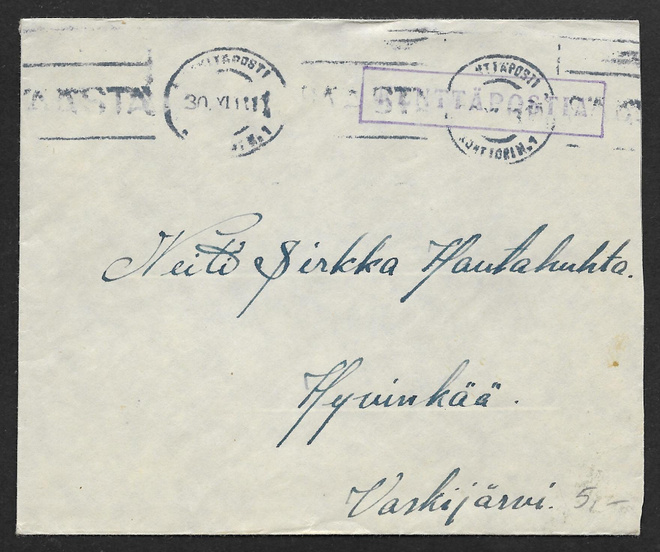 KENTTÄPOSTI
30.XI.41
KENTTÄPOSTIA
KENTTÄPOSTI
KONTTORI N:o 1
Neiti Sirkka Hautahuhta.
Hyvinkää.
Vaskijärvi. 5,-